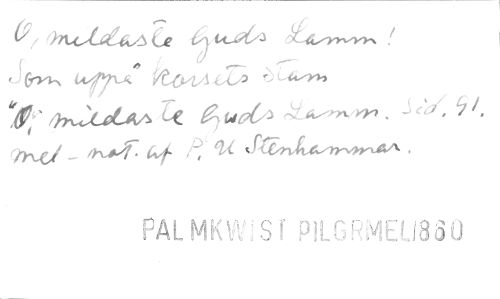 O, mildaste Guds Lamm!
Som uppå korsets stam
"O, mildaste Guds Lamm. Sid. 91.
mel-not. af P. U Stenhammar.
PALMKWIST PILGRMEL1860